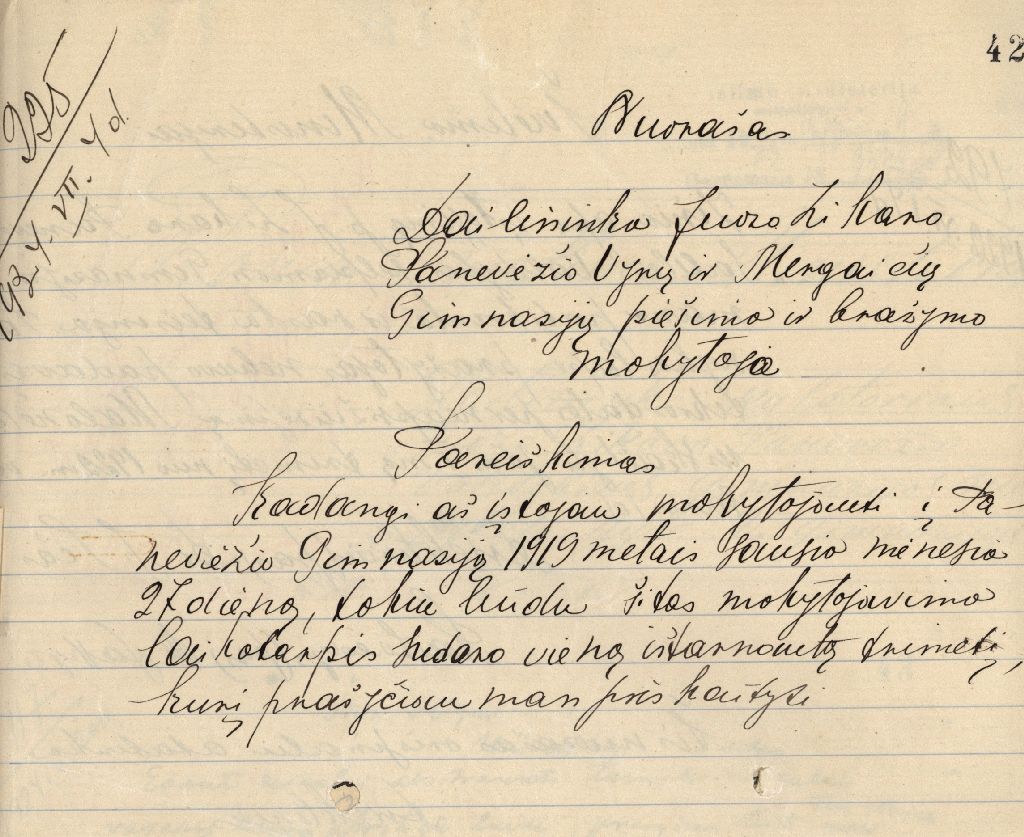 42
925
1924. VII. 4 d.
Nuorašas
Dailininko Juozo Zikaro
Panevėžio Vyrų ir Mergaičių
Gimnasijų piešimo ir braižymo
mokytojo
Pareiškimas
Kadangi aš įstojau mokytojauti į Pa-
nevėžio Gimnasiją 1919 metais sausio mėnesio
27 dieną, tokiu būdu šitas mokytojavimo
laikotarpis sudaro vieną ištarnautą trimetį,
kurį prašyčiau man priskaityti